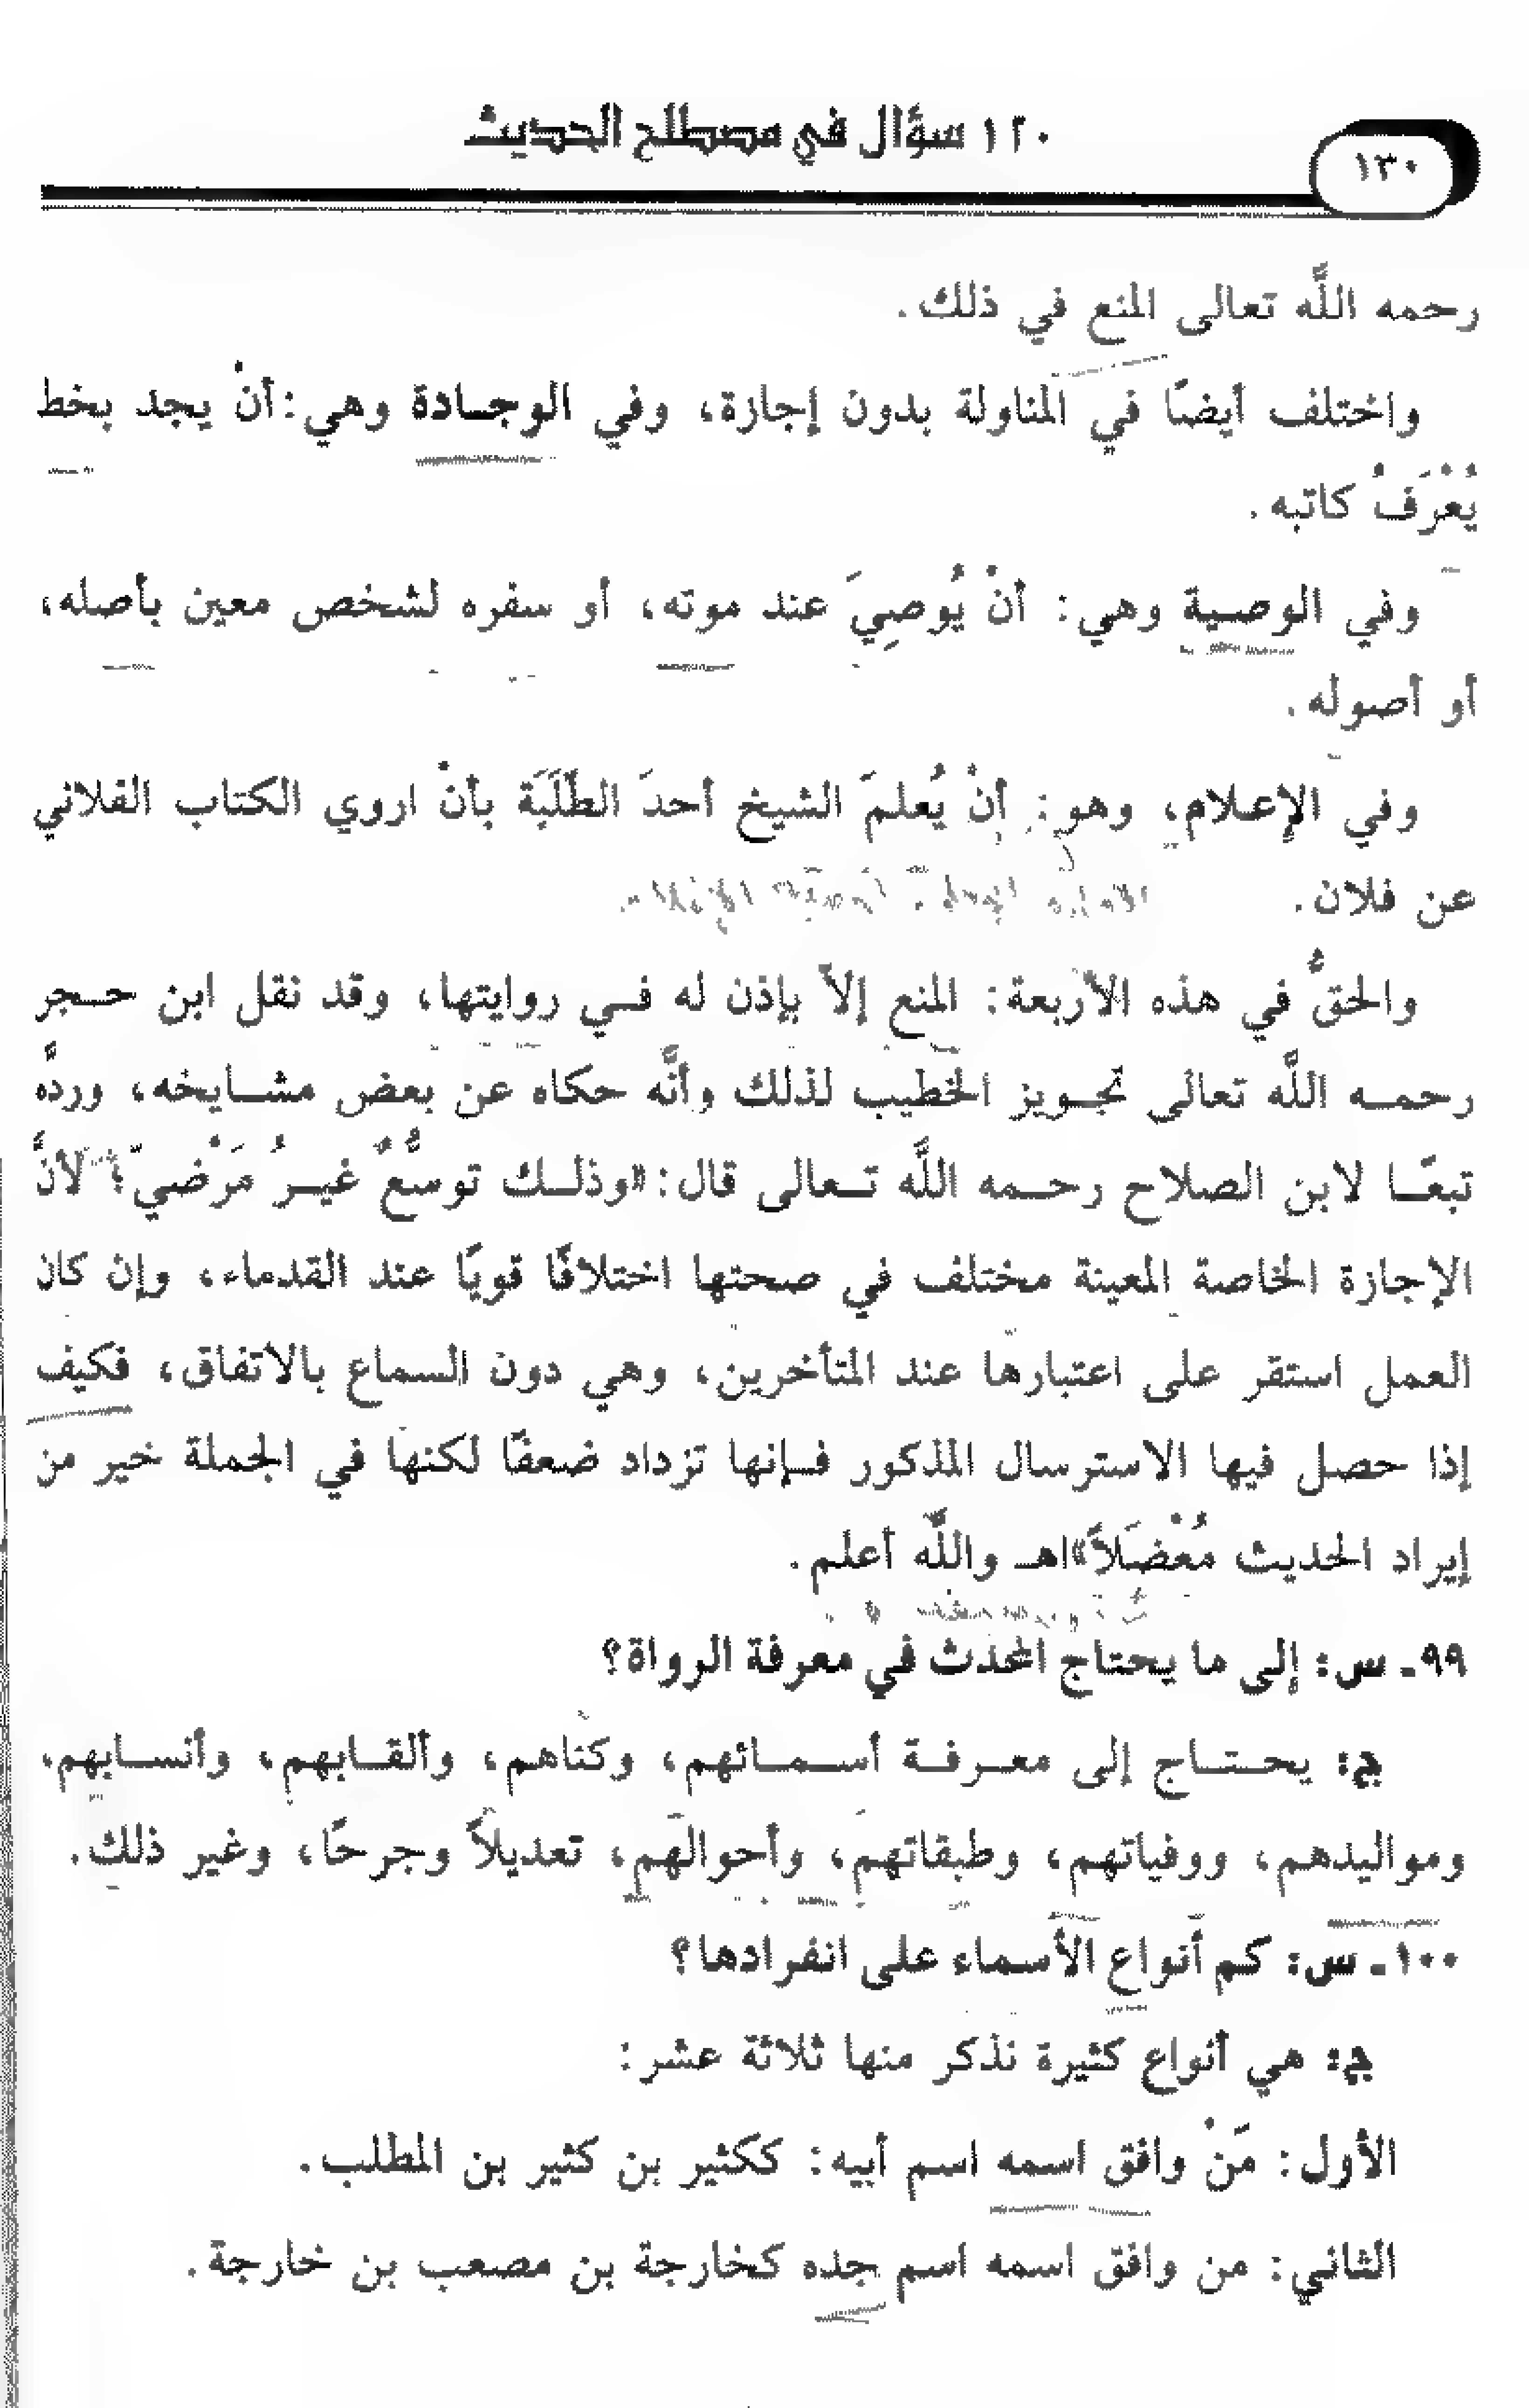 ١٢٠ سؤال في مصطلح الحديث
١٣٠
رحمه اللَّه تعالى المنع في ذلك.
واختلف أيضًا في المناولة بدون إجازة، وفي الوجـادة وهي: أنْ يجد بخط
يُعْرَفُ كاتبه.
وفي الوصـية وهي: أنْ يُوصِيَ عند موته، أو سفره لشخص معين بأصله،
أو أصوله.
وفي الإعـلام، وهو: أنْ يُعلمَ الشيخ أحدَ الطَلَبَة بأنْ اروي الكتاب الفلاني
عن فلان.
والحقُّ في هذه الأربعة: المنع إلاَّ بإذن له فـي روايتها، وقد نقل ابن حـجر
رحمـه اللَّه تعالى تجـويز الخطيب لذلك وأنَّه حكاه عن بعض مشـايخه، وردَّه
تبعًـا لابن الصلاح رحـمه اللَّه تـعالى قال: «وذلـك توسُّعٌ غيـرُ مَرْضيّ؛ لأنَّ
الإجازة الخاصة المعينة مختلف في صحتها اختلافًا قويًا عند القدماء، وإن كان
العمل استقر على اعتبارها عند المتأخرين، وهي دون السماع بالاتفاق، فكيف
إذا حصل فيها الاسترسال المذكور فـإنها تزداد ضعفًا لكنها في الجملة خير من
إيراد الحديث مُعْضَلاً» اهـ واللَّه أعلم.
٩٩ـ س: إلى ما يحتاج المحدث في معرفة الرواة؟
ج: يحـتـاج إلى معـرفـة أسـمـائهم، وكناهم، وألقـابهم، وأنسـابهم،
ومواليدهم، ووفياتهم، وطبقاتهم، وأحوالهم، تعديلاً وجرحًا، وغير ذلك.
١٠٠ـ س: كم أنواع الأسماء على انفرادها؟
ج: هي أنواع كثيرة نذكر منها ثلاثة عشر:
الأول: مَنْ وافق اسمه اسم أبيه: ككثير بن كثير بن المطلب.
الثاني: من وافق اسمه اسم جده كخارجة بن مصعب بن خارجة.